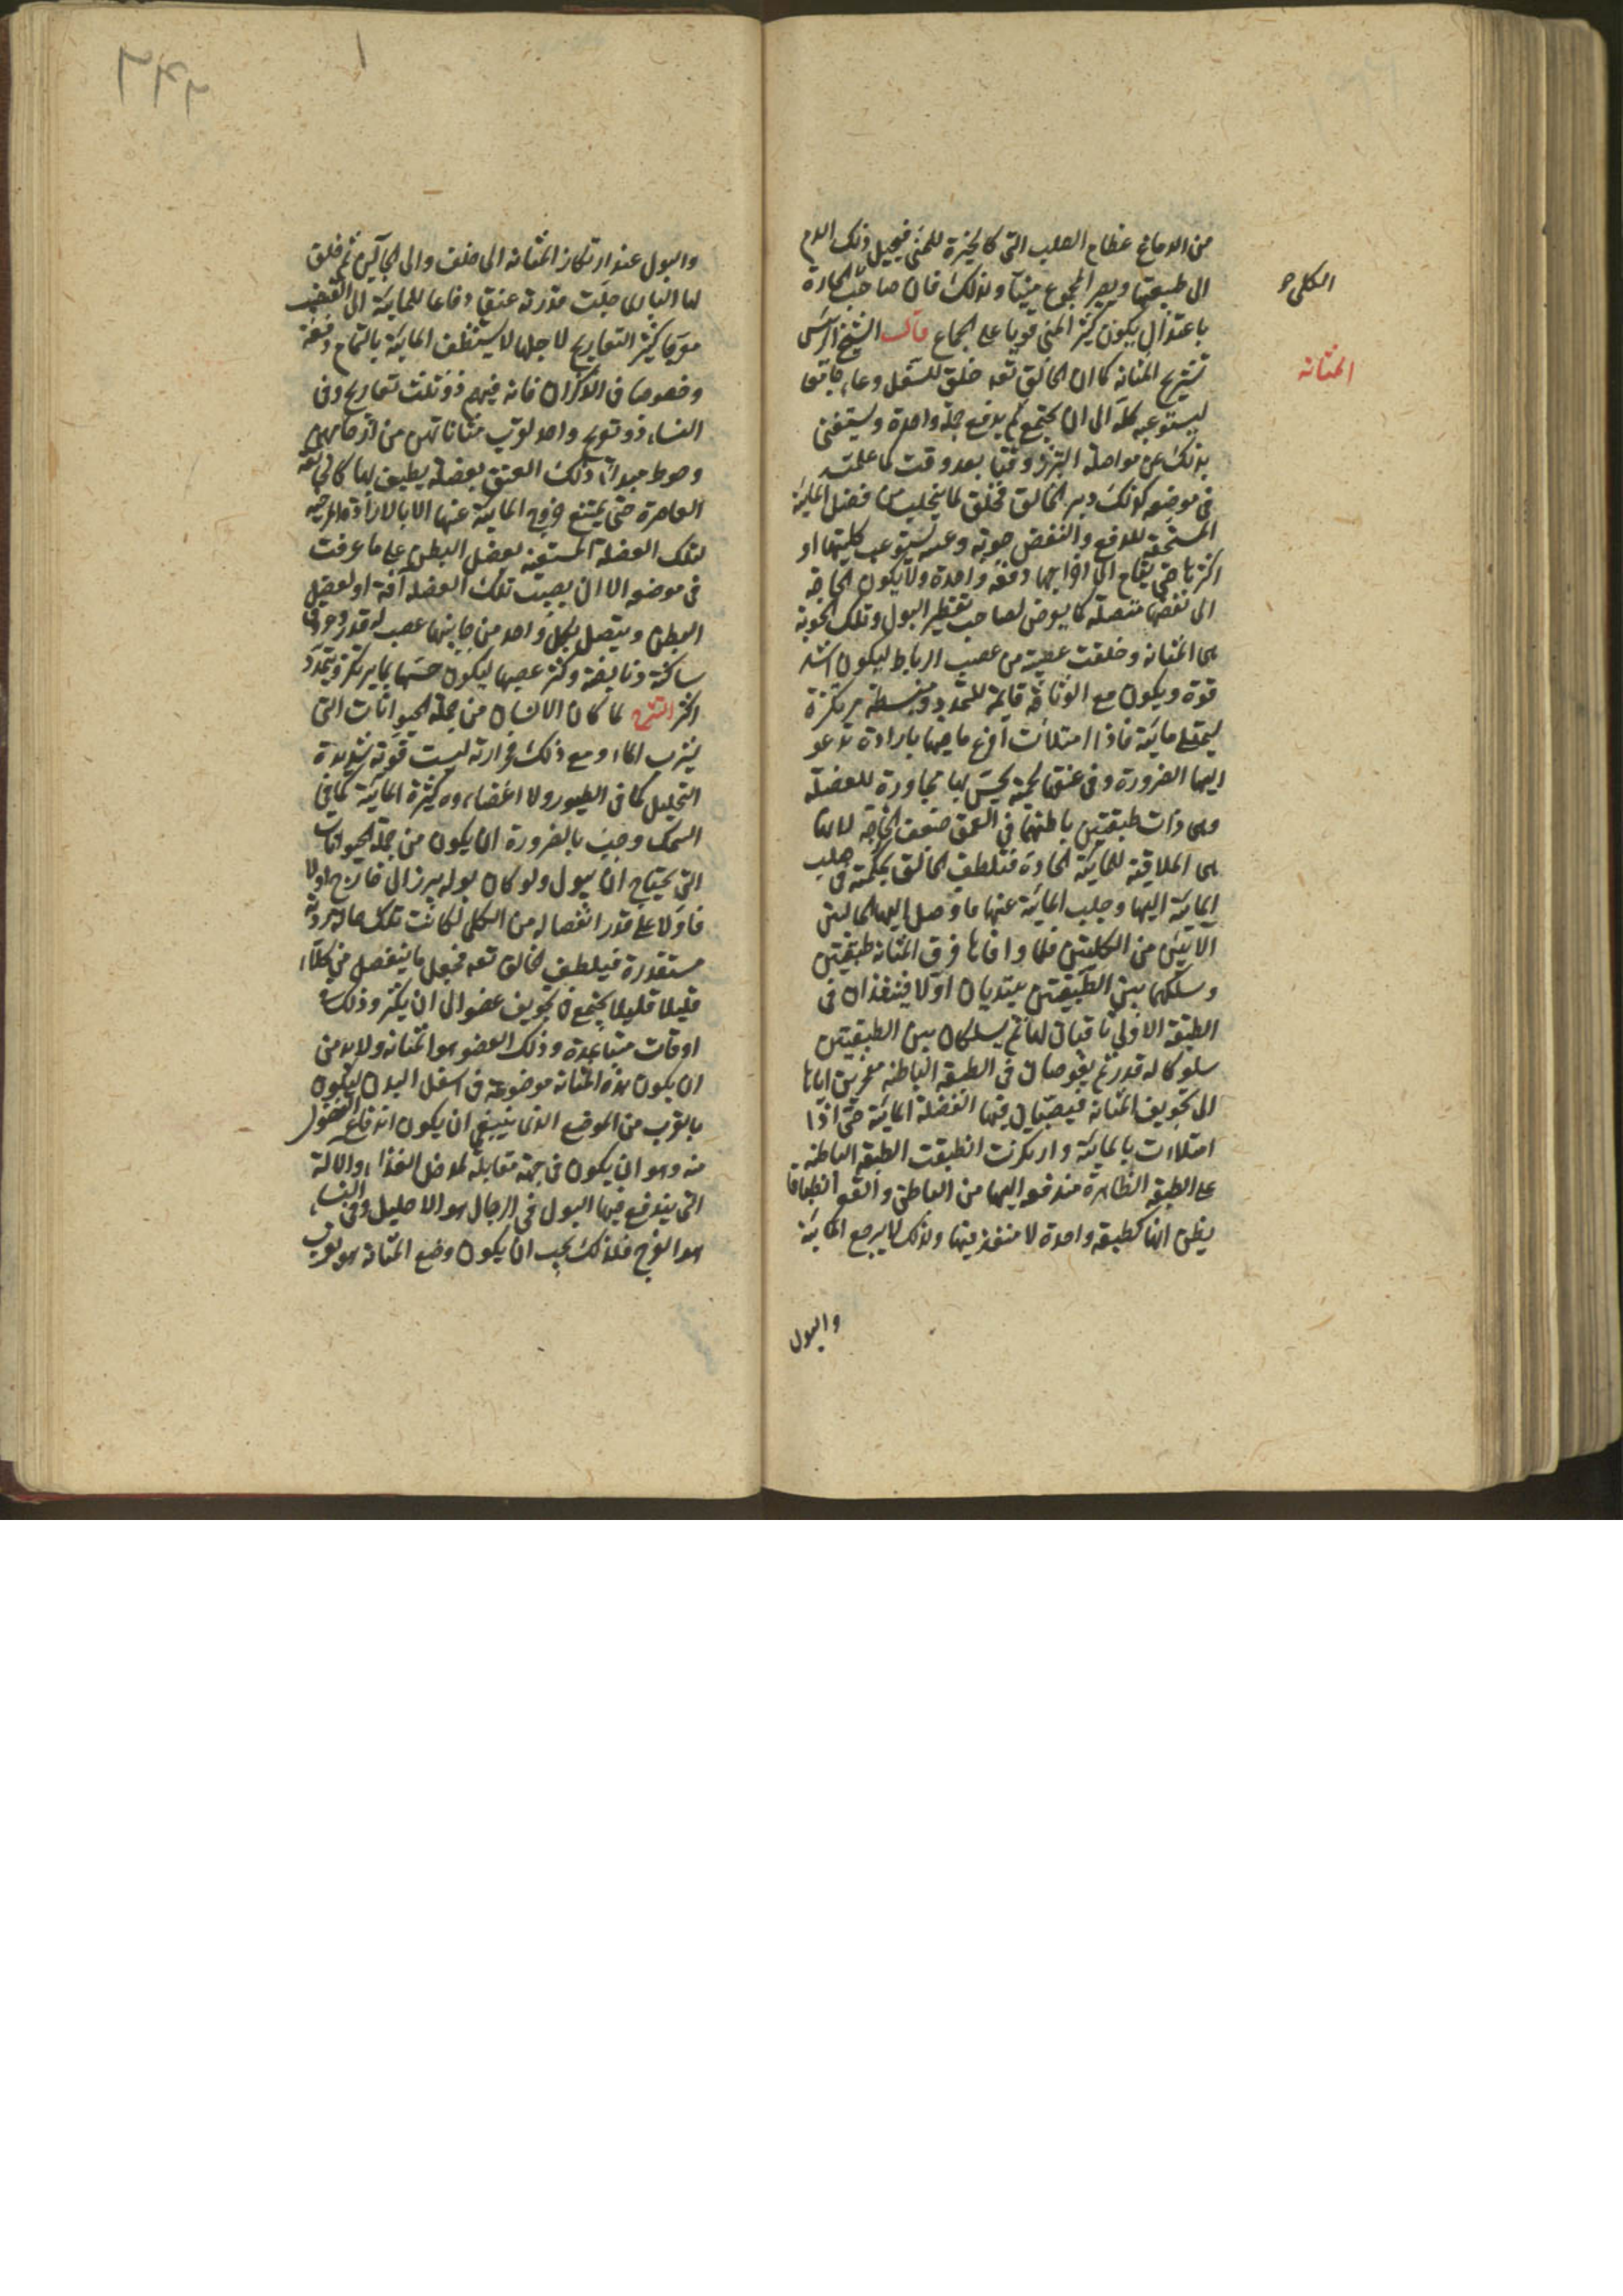 من الدماغ عظام الصلب التى كالخيرة للمنى فيحيل ذلك الدم
الى طبيعتها ويصير المجموع منيا ولذلك فان صاحب الحارة
باعتدال يكون كثير المنى قويا على الجماع قال الشيخ الرئيس
تشريح المثانة كما ان الخالق تعه خلق للثفل وعاء جامعا
يستوعبه كله الى ان يجتمع ثم يدفع جملة واحدة ويستغنى
بذلك عن مواصلة التبرز وقتا بعد وقت كما علمته
فى موضعه كذلك دبر الخالق فخلق لما يتحلب من فضل المائية
المستحقة للدفع والنفض جوبة وعيبة تستوعب كليتها او
اكثرها حتى يقام الى اخراجها دفعة واحدة ولا يكون الحاجة
الى نفضها متصلة كما يعرض لصاحب تقطير البول وتلك الجوبة
هى المثانة وخلقت عصبية من عصب الرباط ليكون اشد
قوة ويكون مع الوثاقة قابلة للتمدد منبسطة مرتكزة
ليمتلى مائية فاذا امتلأت افرغ ما فيها بارادة تدعو
اليها الضرورة وفى عنقها لحمة يحس بها مجاورة للعضلة
وهى ذات طبقتين باطنتهما فى العمق ضعف الخارجة لانها
هى الملاقية للمائية الحادة فتلطف الخالق بحكمته فى جلب
المائية اليها وجلب المائية عنها فاوصل اليها الحالبين
الآتيين من الكليتين فلما وافاها فرق المثانة طبقتين
وسلكهما بين الطبقتين يبتديان اولا فينفذان فى
الطبقة الاولى ثاقبان لها ثم يسلكان بين الطبقتين
سلوكا له قدر ثم يغوصان فى الطبقة الباطنة مفجرين اياها
الى تجويف المثانة فيصبان فيها الفضلة المائية حتى اذا
امتلاءت بالمائية وارتكزت انطبقت الطبقة الباطنة
على الطبقة الظاهرة مندفعة اليها من الباطن والقعر انطباقا
يظن انها كطبقة واحدة لا منفذ فيها ولذلك لا يرجع المائية
والبول
الكلى
المثانة
والبول عند ارتكاز المثانة الى خلف والى الحالبين ثم خلق
لها البارى جلت قدرته عنقا دفاعا للمائية الى القضيب
معوجا كثير التعاريج لاجلها لا يستنظف المائية بالتمام دفعة
وخصوصا فى الذكران فانه فيهم ذو ثلث تعاريج وفى
النساء ذو تعريج واحد لقرب مثاناتهن من ارحامهن
وحوط مبدأ ذلك العنق بعضلة يطيف بها كالخانقة
العاصرة حتى يمتنع خروج المائية عنها الا بالارادة المرخية
لتلك العضلة المستعينة بعضل البطن على ما عرفت
فى موضعه الا ان يصيب تلك العضلة آفة او لعضل
البطن ويتصل بكل واحد من جانبيها عصب له قدر وعروق
ساكنة ونابضة وكثر عصبها ليكون حسها بما يرتكز ويتمدد
اكثر الشرح لما كان الانسان من جملة الحيوانات التى
يشرب الماء ومع ذلك حرارته ليست قوية شديدة
التحليل كما فى الطيور ولا اعضاءوه كثيرة المائية كما فى
السمك وجب بالضرورة ان يكون من جملة الحيوانات
التى يحتاج ان يبول ولو كان بوله يبرز الى خارج اولا
فاولا على قدر انفصاله من الكلى لكانت تلك حالة مردية
مستقذرة فيلطف الخالق تعه فجعل ما ينفصل من الماء
قليلا قليلا يجتمع فى تجويف عضو الى ان يكثر وذلك فى
اوقات متباعدة وذلك العضو هو المثانة ولابد من
ان يكون هذه المثانة موضوعة فى اسفل البدن ليكون
بالقرب من الموضع الذى ينبغى ان يكون اندفاع الفضول
منه وهو ان يكون فى جهة مقابلة لمدخل الغذاء والالة
التى يندفع فيها البول فى الرجال هو الاحليل وفى النساء
هو الفرج فلذلك يجب ان يكون وضع المثانة هو بقرب